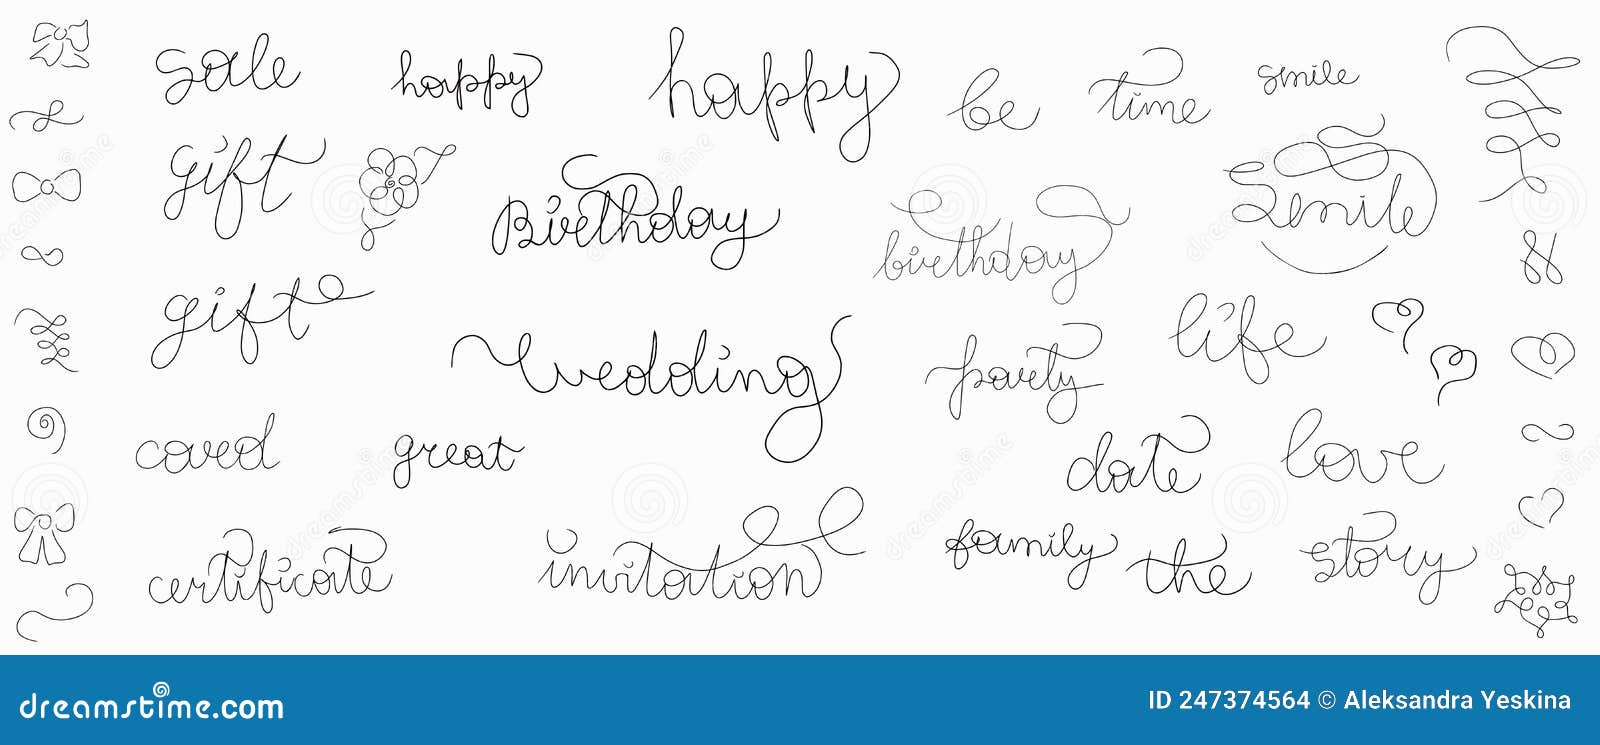 sale
happy
happy
be
time
smile
gift
Birthday
birthday
Smile
gift
wedding
party
life
caved
great
date
love
certificate
invitation
family
the
story
dreamstime.com
ID 247374564 © Aleksandra Yeskina